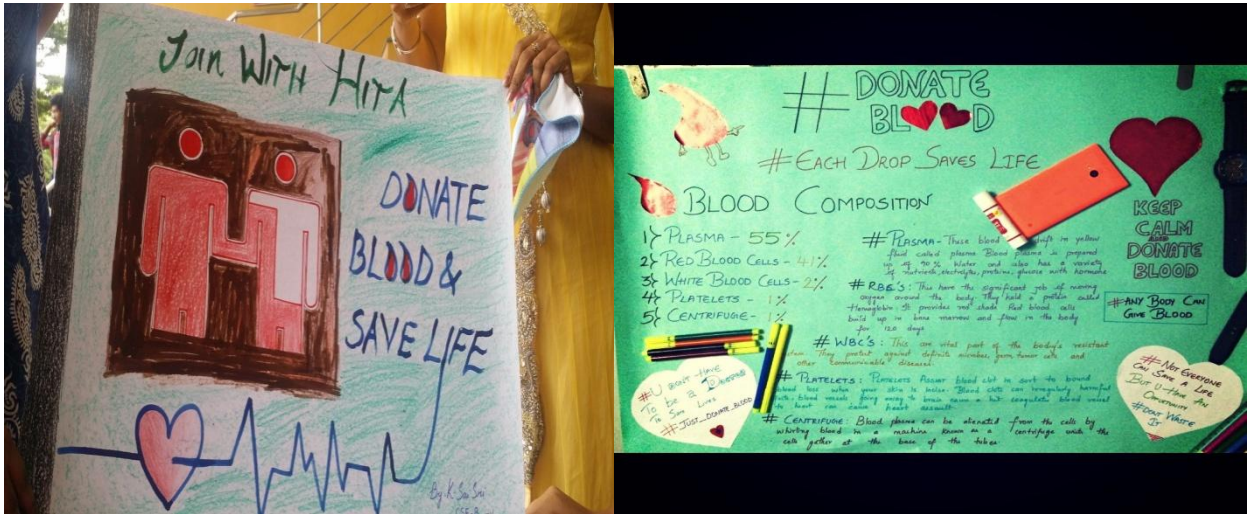 Join With Hita
DONATE
BLOOD &
SAVE LIFE
By: K. Sai Sri
# DONATE
BLOOD
# EACH DROP SAVES LIFE
BLOOD COMPOSITION
1} PLASMA - 55%
2} RED BLOOD CELLS - 41%
3} WHITE BLOOD CELLS - 2%
4} PLATELETS - 1%
5} CENTRIFUGE - 1%
# PLASMA - These blood drift in yellow
fluid called plasma Blood plasma is prepared
up of 90% water and also has a variety
of nutrients, electrolytes, proteins, glucose with hormone
# RBC'S: This have the significant job of moving
oxygen around the body. They hold a protein called
Hemoglobin. It provides red shade Red blood cells
build up in bone marrow and flow in the body
for 120 days
# WBC'S: This are vital part of the body's resistant
They protect against definite microbes, from tumor cells and
other communicable diseases.
# PLATELETS: PLATELETS Assist blood clot in sort to
blood loss when your skin is broken. Blood clots can irregularly harmful
blood vessels going away to brain cause a hit coagulate blood vessel
to heart can cause heart assault
# CENTRIFUGE: Blood plasma can be alienated from the cells by
whirling blood in a machine known as a centrifuge with the
cells gether at the base of the tubes
KEEP
CALM
AND
DONATE
BLOOD
# ANY BODY CAN
GIVE BLOOD
# U DON'T HAVE
TO BE A
TO SAVE LIVES
# JUST_DONATE_BLOOD
# NOT EVERYONE
CAN SAVE A LIFE
BUT U HAVE AN
OPPORTUNITY
# DONT WASTE
IT